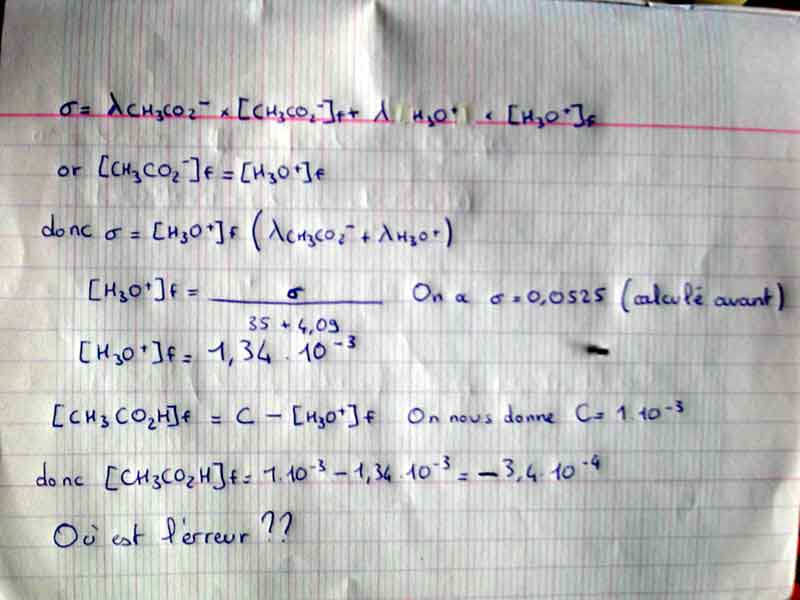 σ = λCH₃CO₂⁻ × [CH₃CO₂⁻]f + λ H₃O⁺ × [H₃O⁺]f
or [CH₃CO₂⁻]f = [H₃O⁺]f
donc σ = [H₃O⁺]f (λCH₃CO₂⁻ + λH₃O⁺)
[H₃O⁺]f = σ / 35 + 4,09 On a σ = 0,0525 (calculé avant)
[H₃O⁺]f = 1,34 . 10⁻³
[CH₃CO₂H]f = C - [H₃O⁺]f On nous donne C = 1.10⁻³
donc [CH₃CO₂H]f = 1.10⁻³ - 1,34.10⁻³ = -3,4.10⁻⁴
Où est l'erreur ??